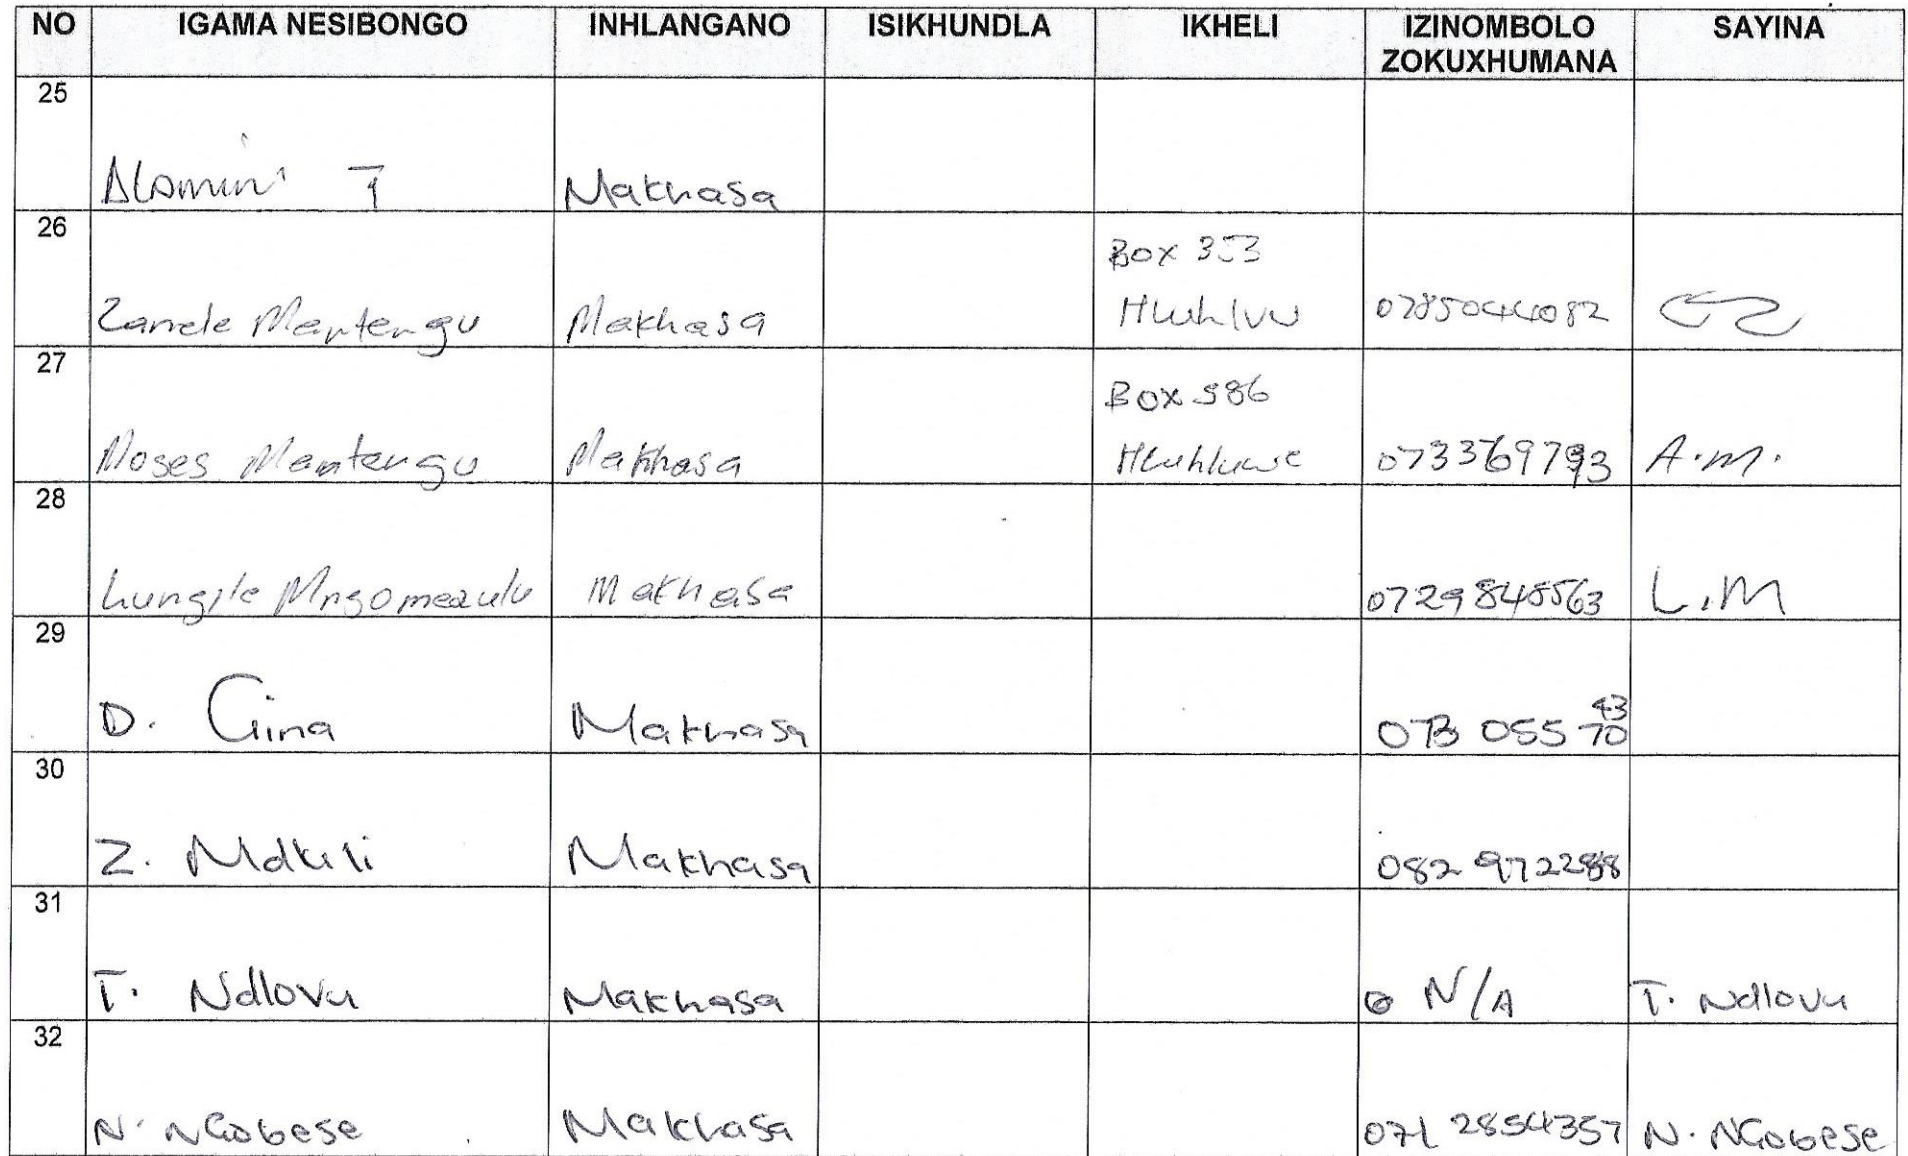 NO IGAMA NESIBONGO INHLANGANO ISIKHUNDLA IKHELI IZINOMBOLO ZOKUXHUMANA SAYINA
25
Dlamini T Makhasa
26
Box 353
Zanele Mantengu Makhasa Hluhluw 0785044082
27
Box 586
Moses Mantengu Makhasa Hluhluwe 0733369793 A.M.
28
Lungile Mngomezulu Makhasa 0729848563 L.M
29
D. Gina Makhasa 073 055 70 43
30
Z. Mdluli Makhasa 082 972288
31
T. Ndlovu Makhasa N/A T. Ndlovu
32
N. NGobese Makhasa 071 2854357 N. NGobese